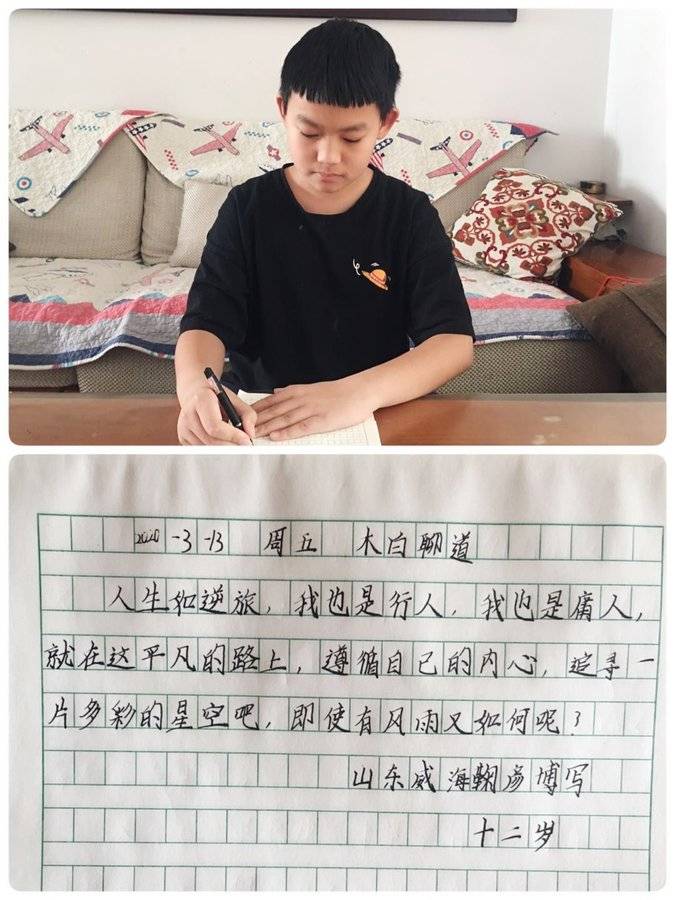 2020-3-13 周五 木白聊道
人生如逆旅，我也是行人，我也是庸人，
就在这平凡的路上，遵循自己的内心，追寻一
片多彩的星空吧，即使有风雨又如何呢？
山东威海鞠彦博写
十二岁